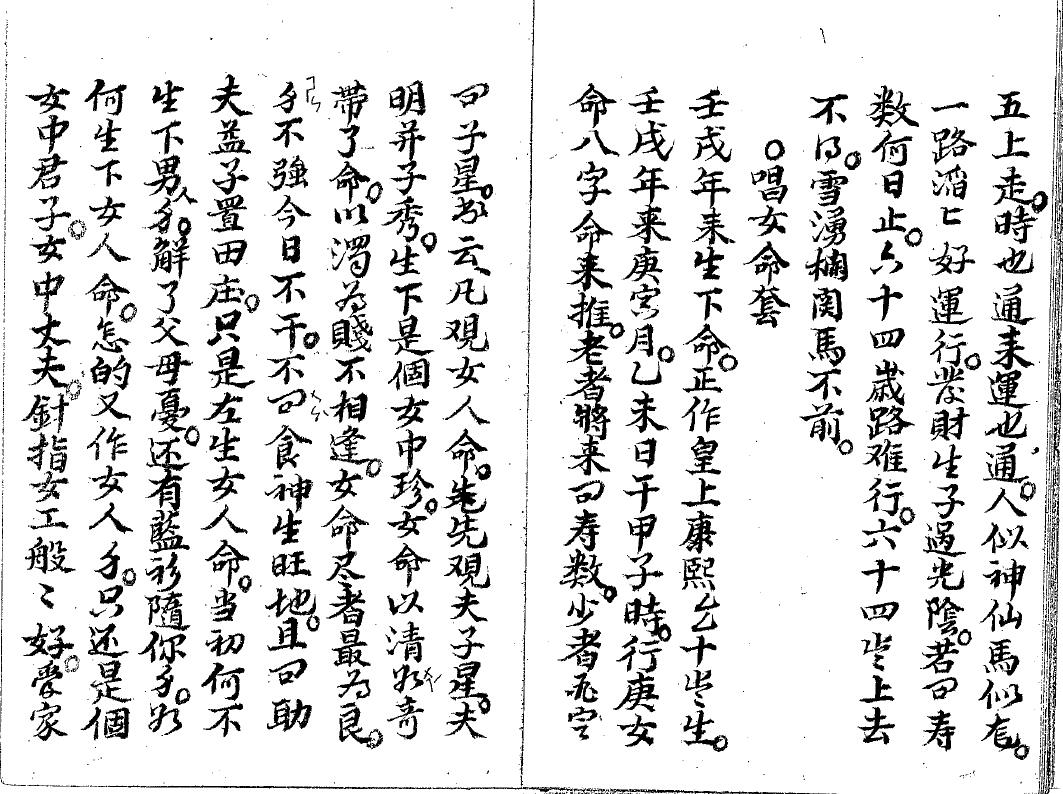 五上走。時也通来運也通。人似神仙馬似
一路滔匕好運行。發財生子過光陰。若问寿
数何日止。六十四歲路难行。六十四岁上去
不得。雪湧欄関馬不前。
○唱女命套
壬戌年来生下命。正作皇上康熙乙十岁生。
壬戌年来庚寅月。乙未日干甲子時。行庚女
命八字命来推。老者將来问寿数。少者
问子星。书云凡观女人命。先观夫子星。夫
明并子秀。生下是個女中珍。女命以清为奇
帶了命。以濁为賤不相逢。女命尽者最为良。
不強今日不干。不问食神生旺地。且问助
夫益子置田庄。只是左生女人命。当初何不
生下男人身。解了父母憂。还有藍衫隨你身。为
何生下女人命。怎的又作女人身。只还是個
女中君子。女中丈夫。針指女工般〻好。愛家